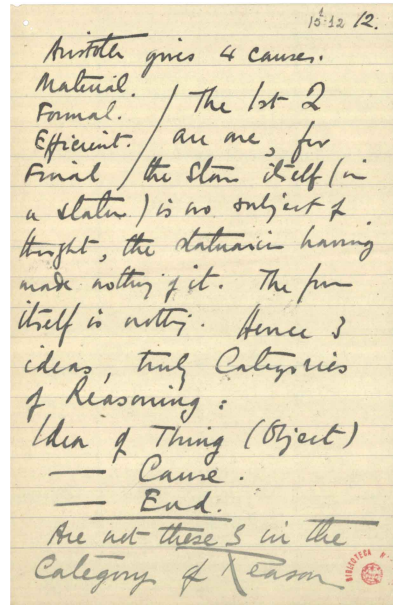 15¹12 12.
Aristotle gives 4 causes.
Material.
Formal. / The 1st 2
Efficient. / are one, for
Final / the stone itself (in
a statue) is no subject of
thought, the statuaries having
made nothing of it. The form
itself is nothing. Hence 3
ideas, truly Categories
of Reasoning:
Idea of Thing (Object)
— Cause.
— End.
Are not these 3 in the
Category of Reason
BIBLIOTECA